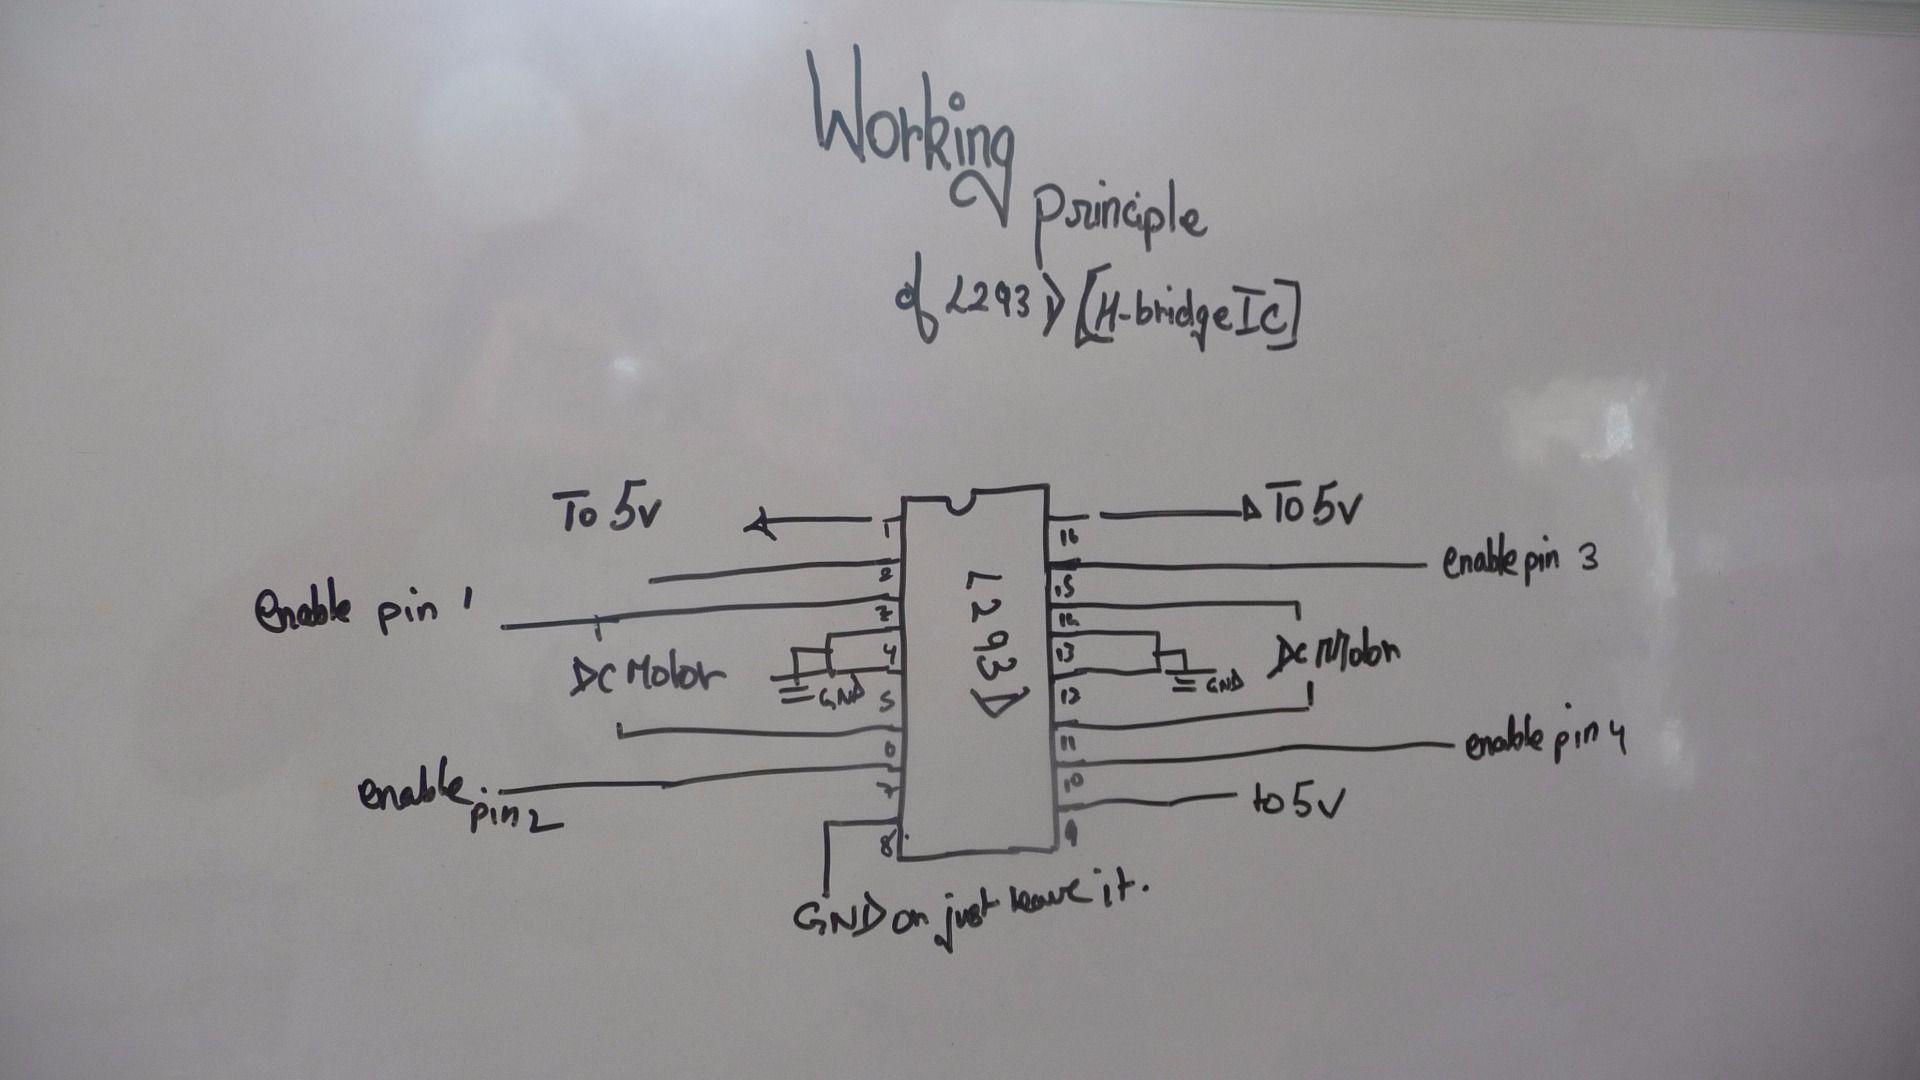 Working
principle
of L293D [H-bridge IC]
To 5v
To 5v
1
16
enable pin 3
2
15
enable pin 1
3
14
L293D
DC Motor
GND
4
13
GND
DC Motor
5
12
6
11
enable pin 4
enable
pin 2
7
10
to 5v
8
9
GND or just leave it.